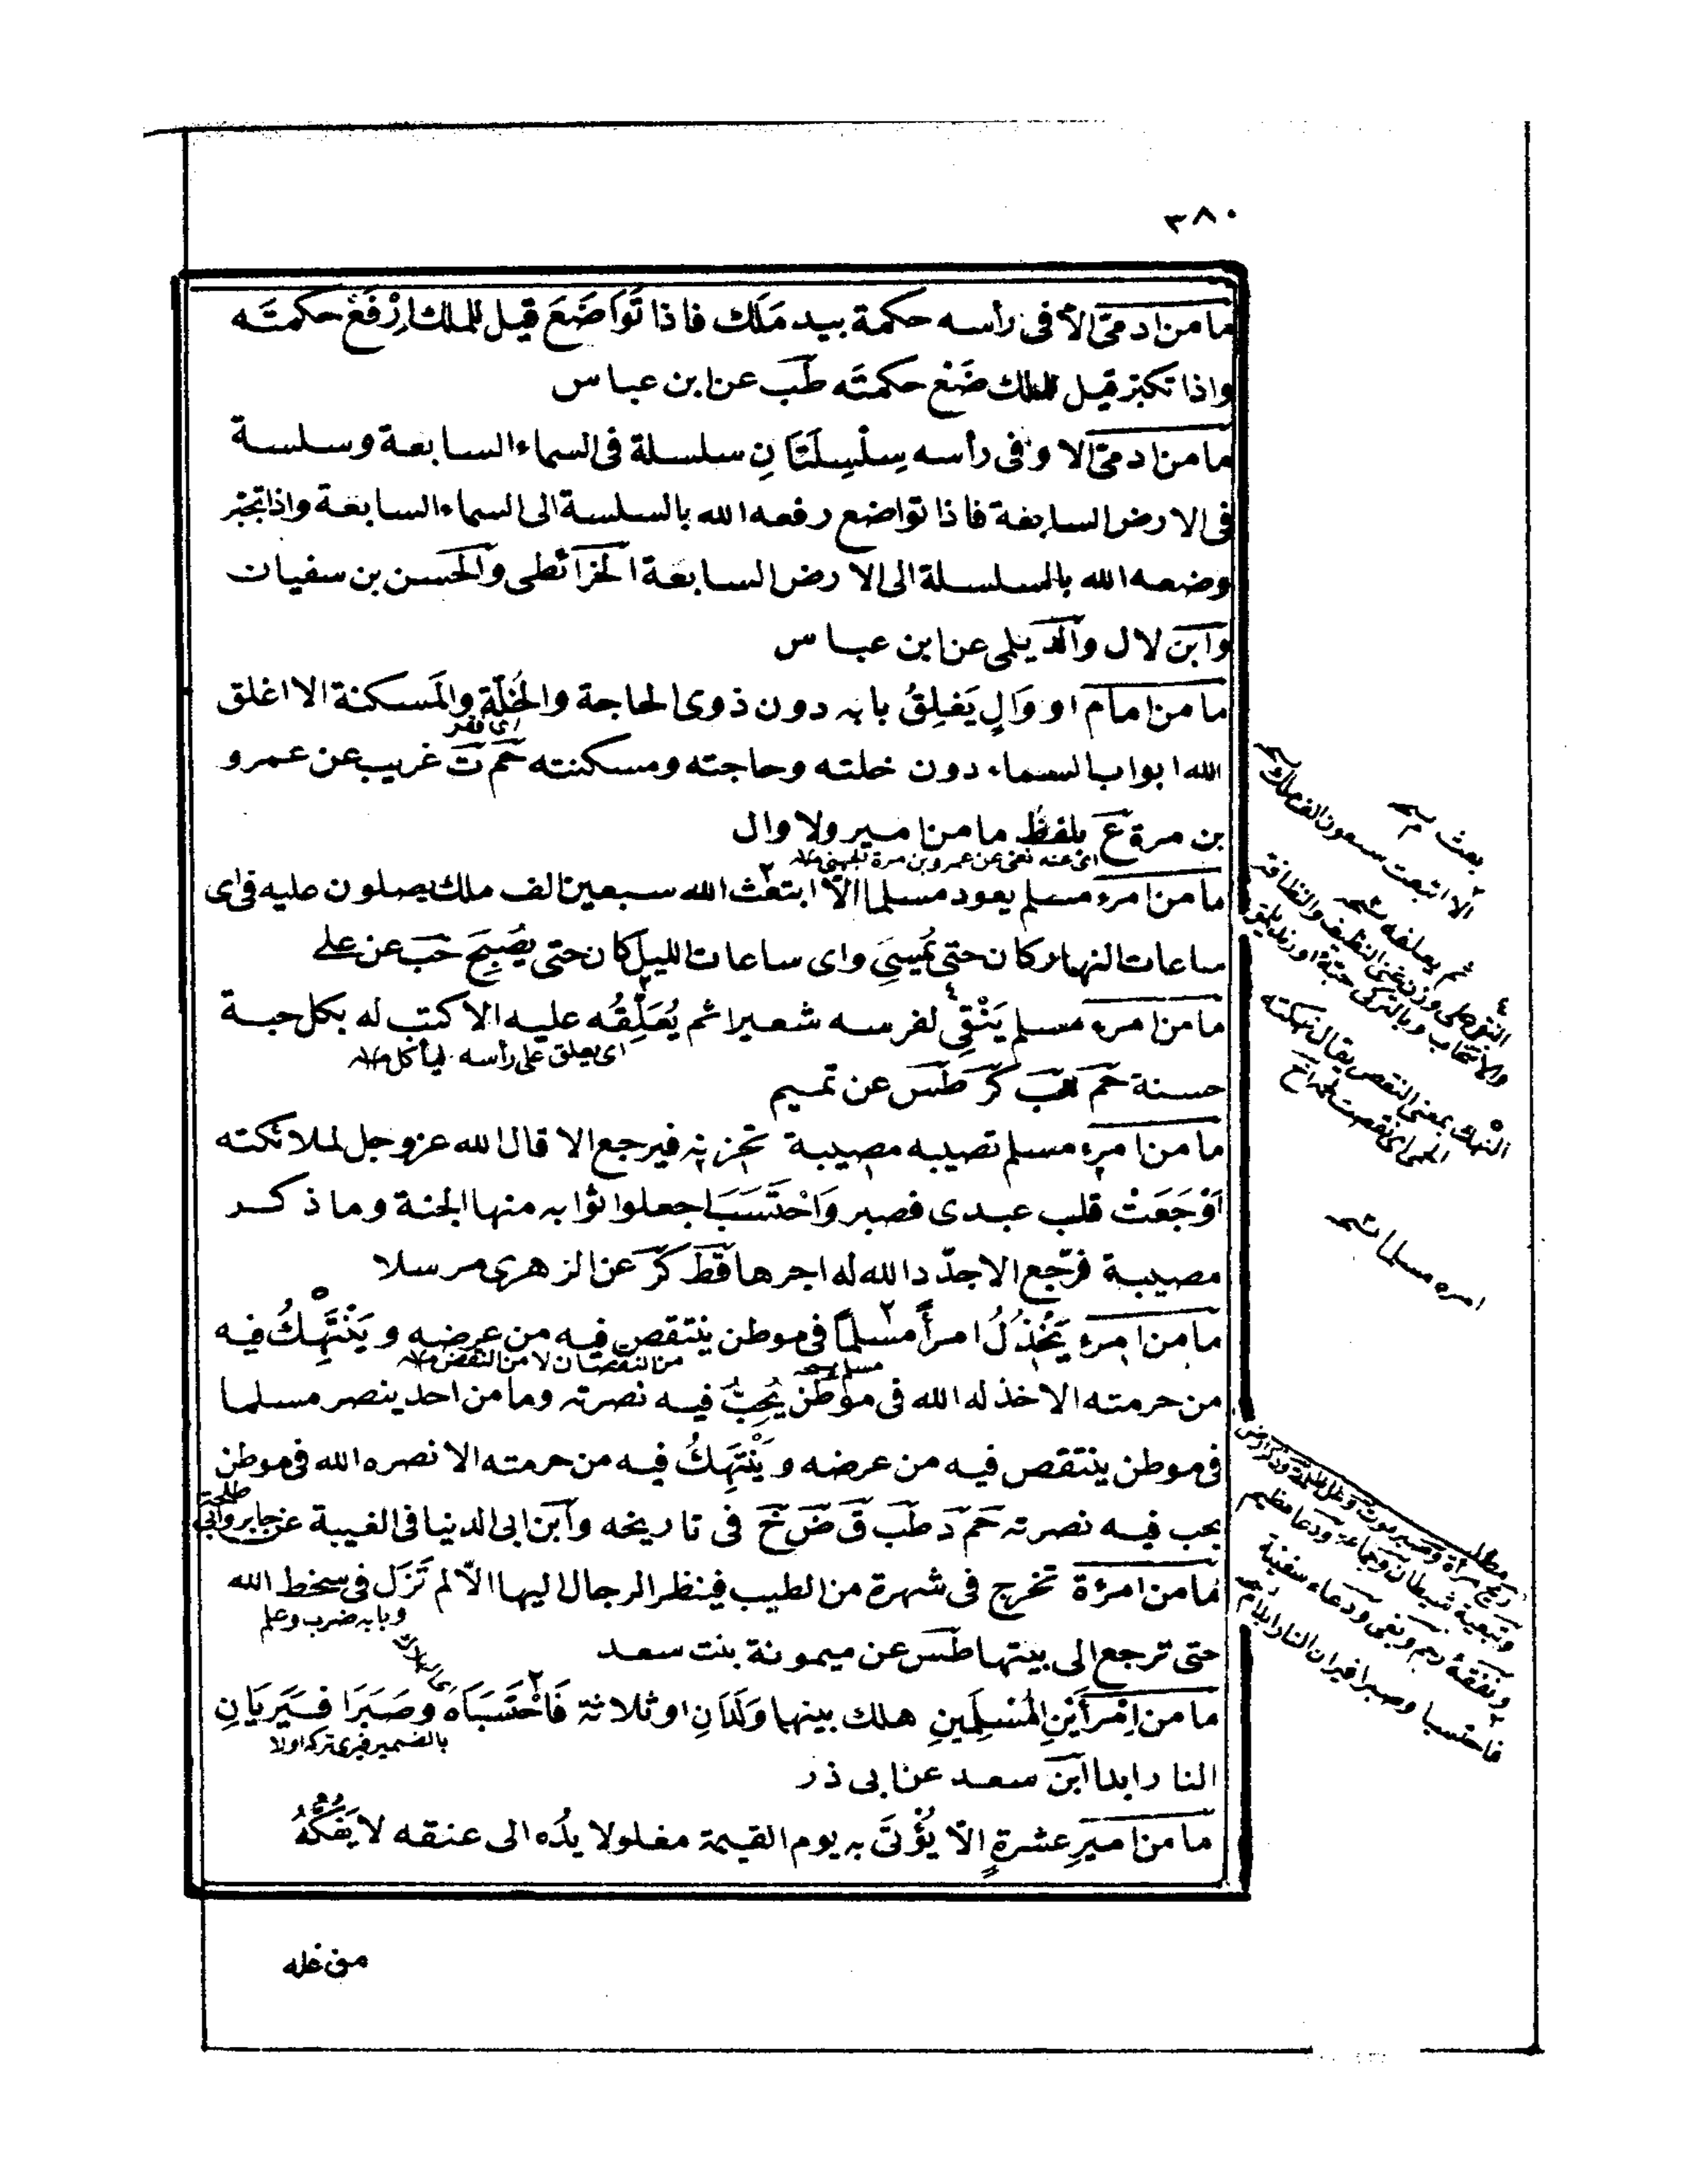 ٣٨٠
ما من ادمىّ الا فى رأسه حكمة بيد مَلَك فاذا تَوَاضَعَ قيل للملك اِرْفَعْ حكمتَه
واذا تكبر قيل للملك ضَعْ حكمتَه طب عن ابن عباس
ما من ادمىّ الا وفى رأسه سِلْسِلَتَانِ سلسلة فى السماء السابعة وسلسة
فى الارض السابعة فاذا تواضع رفعه الله بالسلسة الى السماء السابعة واذا تجبّر
وضعه الله بالسلسلة الى الارض السابعة الخرائطى والحسن بن سفيان
وابن لال والديلمى عن ابن عباس
ما من امام او وَالٍ يَغلِقُ بابه دون ذوى الحاجة والخَلّة والمَسكنة الا اغلق
اى فقر
الله ابواب السماء دون خلته وحاجته ومسكنته حم ت غريب عن عمرو
بن مرة ع بلفظ ما من امير ولا وال
اى عنه يعنى عن عمرو بن مرة الجهنى
ما من امرء مسلم يعود مسلما الّا ابتعث الله سبعين الف ملك يصلون عليه فى اى
ساعات النهار كان حتى يُمسِىَ واى ساعات الليل كان حتى يُصْبِحَ حب عن على
ما من امرء مسلم يَنْقِى لفرسه شعيرا ثم يُعَلِّقُه عليه الا كتب له بكل حبة
اى يعلق على رأسه ليأكل
حسنة حم هب كر طس عن تميم
ما من امرء مسلم تصيبه مصيبة تحزنه فيرجع الا قال الله عز وجل لملائكته
اَوْجَعَتْ قلب عبدى فصبر وَاحْتَسَبَ اجعلوا ثوابه منها الجنة وما ذكر
مصيبة فرَّجع الا جدّد الله له اجرها قط كر عن الزهرى مرسلا
ما من امرء يَخْذُلُ امرأً مسلماً فى موطن ينتقص فيه من عرضه ويَنْتَهِكُ فيه
من النقصان لا من النقض
من حرمته الا خذله الله فى موطن يُحِبُّ فيه نصرته وما من احد ينصر مسلما
فى موطن ينتقص فيه من عرضه ويَنْتَهِكُ فيه من حرمته الا نصره الله فى موطن
يحب فيه نصرته حم د طب ق ض خ فى تاريخه وابن ابى الدنيا فى الغيبة عن جابر وابى طلحة
ما من امرؤة تخرج فى شهرة من الطيب فينظر الرجال اليها الّا لم تَزَل فى سخط الله
وبابه ضرب وعلم
حتى ترجع الى بيتها طس عن ميمونة بنت سعد
ما من اِمْرأَيْنِ المُسْلِمَينِ هلك بينهما وَلَدَانِ او ثلاثة فَاحْتَسَبَاهُ وصَبَرَا فَيَرَيَانِ
بالضمير فيرى تركه اولا
النار ابدا ابن سعد عن ابى ذر
ما من اميرِ عشرةٍ الّا يُؤْتَى به يوم القيمة مغلولا يدُه الى عنقه لا يَفُكُّهُ
من غله
الا اتبعت سبعون الف ملك
ثم يعلفه
النهك بمعنى النقص يقال نهكته
امره مسلما
فاحتسبا وصبرا فيريان النار ابدا